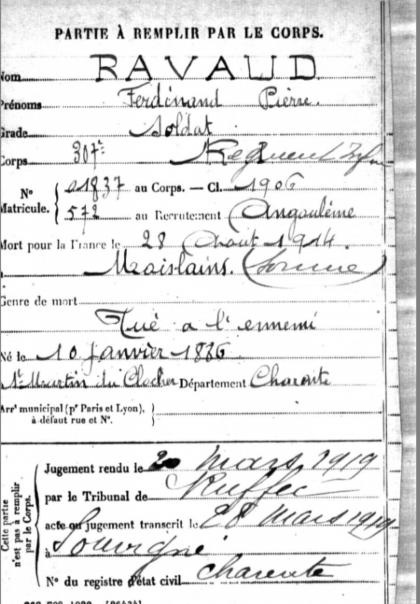 PARTIE À REMPLIR PAR LE CORPS.
Nom RAVAUD.
Prénoms Ferdinand Pierre.
Grade Soldat
Corps 307e Régiment Infie
N° Matricule. { 01837 au Corps. — Cl. 1906
572 au Recrutement Angoulême
Mort pour la France le 28 Août 1914.
à Moislains. (Somme)
Genre de mort
Tué a l'ennemi
Né le 10 Janvier 1886
St Martin du Clocher Département Charente
Arr' municipal (p' Paris et Lyon),
à défaut rue et N°.
Cette partie n'est pas à remplir par le Corps.
Jugement rendu le 20 mars 1919
par le Tribunal de Ruffec
acte ou jugement transcrit le 28 mars 1919
à Souvigné
N° du registre d'état civil Charente